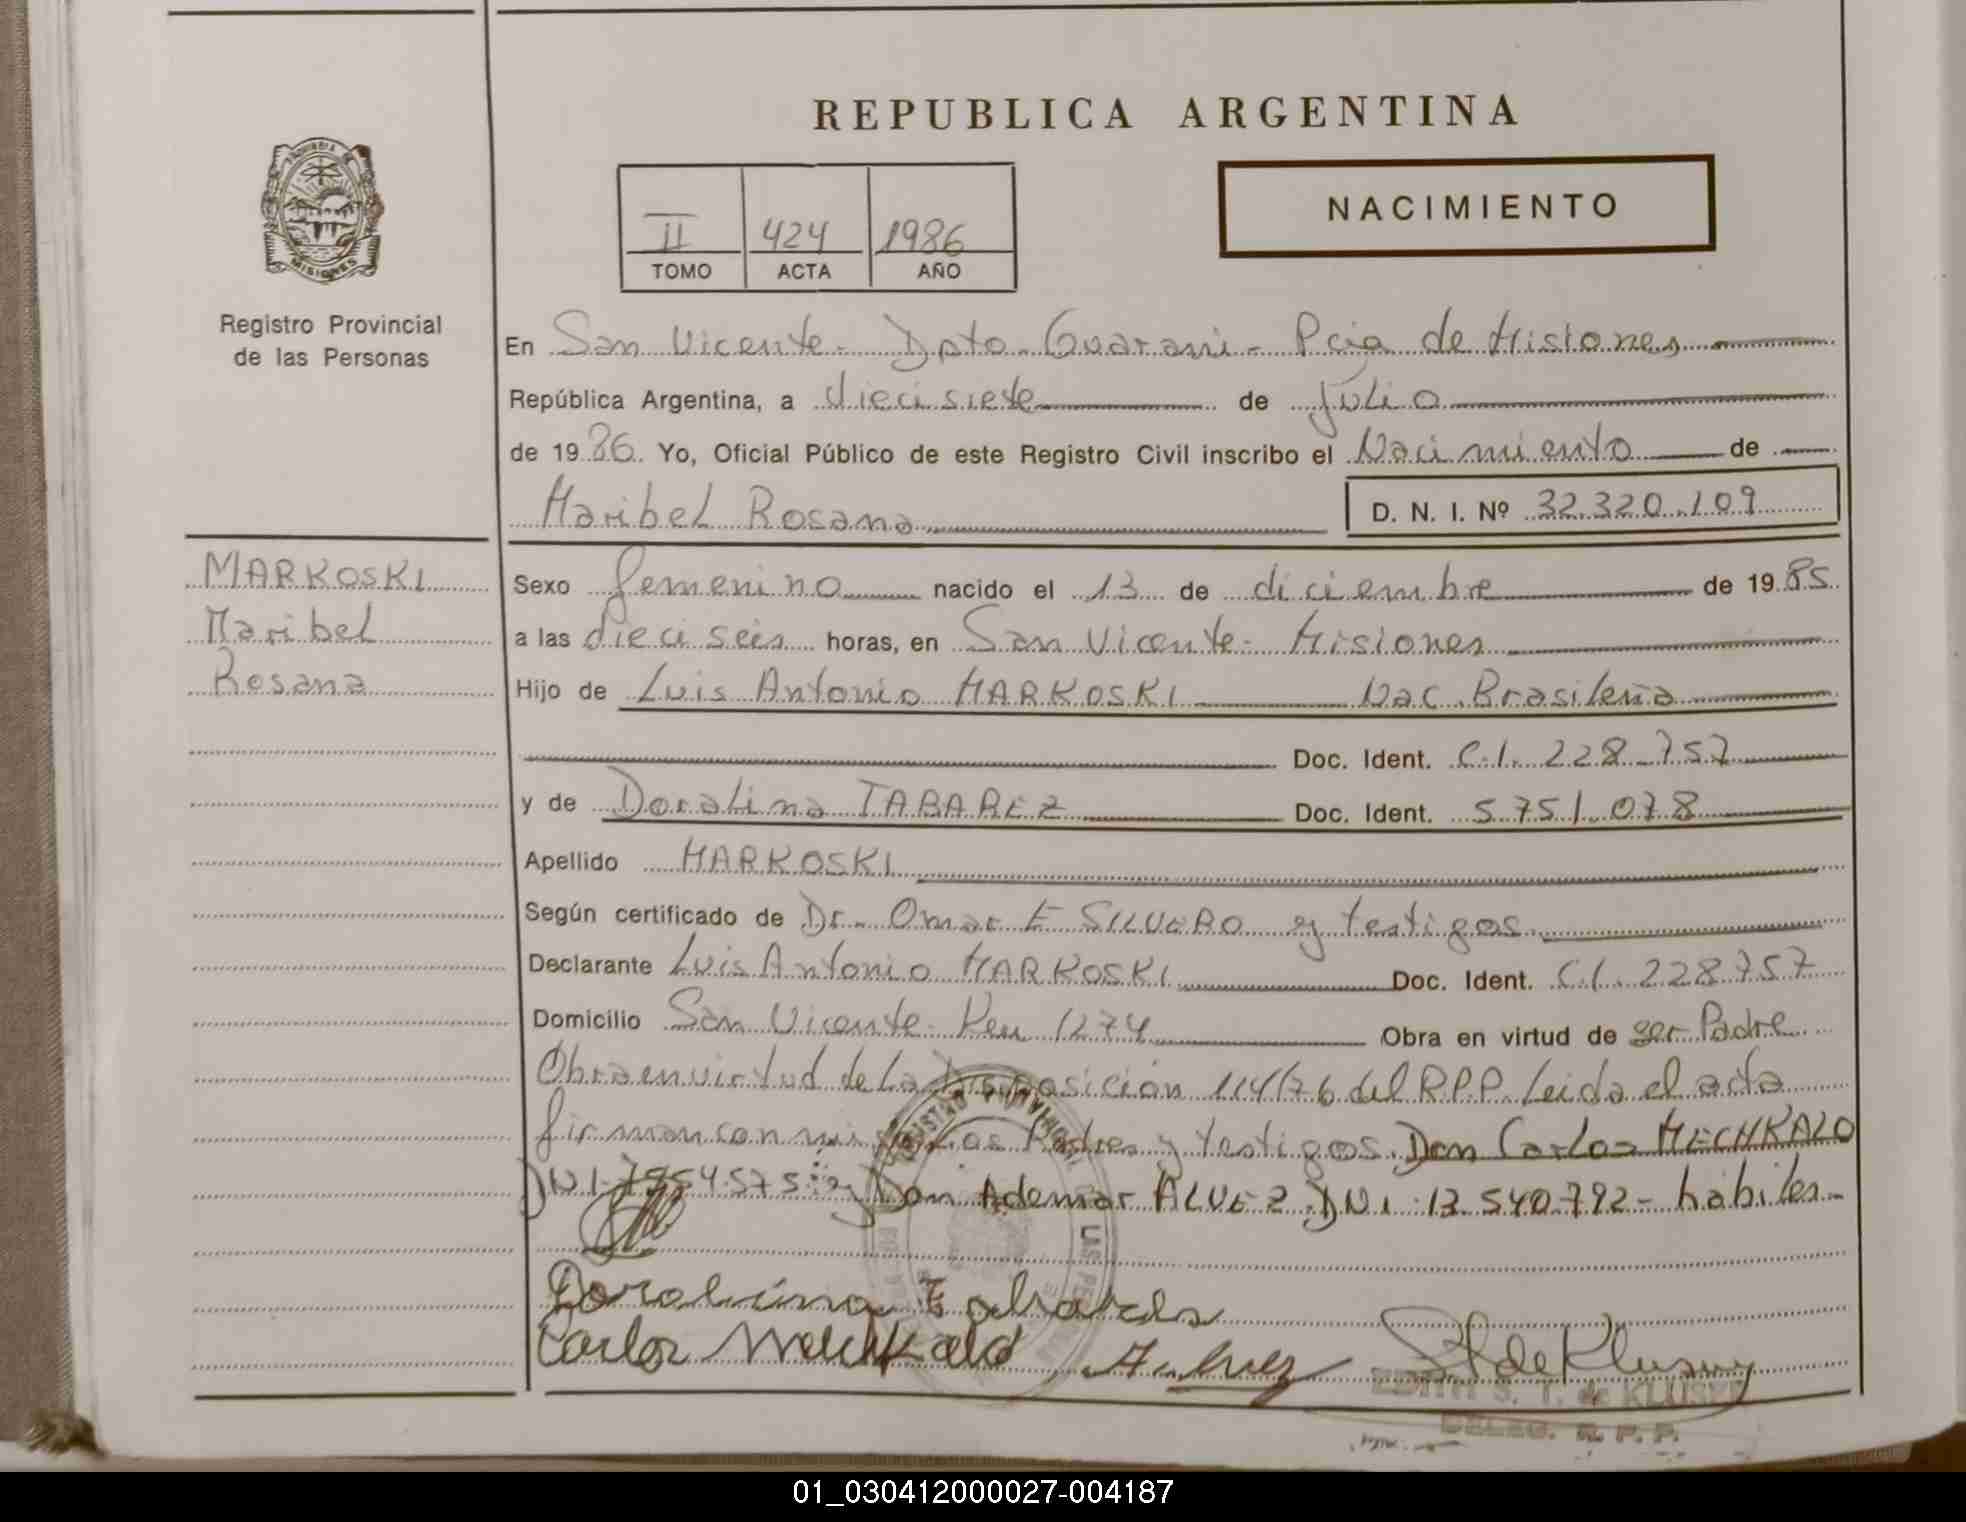 REPUBLICA ARGENTINA
PROVINCIA DE
MISIONES
Registro Provincial
de las Personas
II 424 1986
TOMO ACTA AÑO
NACIMIENTO
En San Vicente - Dpto. Guarani - Pcia de Misiones
República Argentina, a diecisiete de Julio
de 1986. Yo, Oficial Público de este Registro Civil inscribo el Nacimiento de
Maribel Rosana D. N. I. Nº 32.320.109
MARKOSKI
Maribel
Rosana
Sexo femenino nacido el 13 de diciembre de 1985
a las dieciseis horas, en San Vicente - Misiones
Hijo de Luis Antonio MARKOSKI Nac. Brasileña
Doc. Ident. C.I. 228.757
y de Doralina TABAREZ Doc. Ident. 5.751.078
Apellido MARKOSKI
Según certificado de Dr. Omar E SILVERO y testigos
Declarante Luis Antonio MARKOSKI Doc. Ident. C.I. 228757
Domicilio San Vicente - 1274 Obra en virtud de ser Padre
Obra en virtud de la Disposición 114/76 del R.P.P. Leida el acta
firman con migo los Padres y testigos Don Carlos MECHKALO
DNI 7.854.575 y Don Ademar ALVEZ DNI 13.540.792 - habiles -
Doralina Tabares
Carlos
EDITH S. T. de KLUSKE
DELEG. R. P. P.
01_030412000027-004187